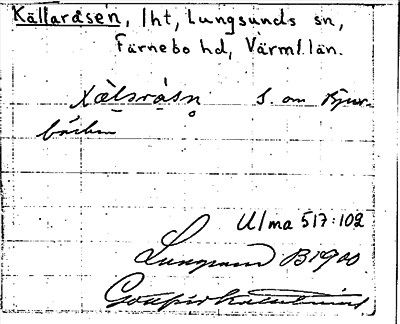 Källaråsen, lht, Lungsunds sn,
Färnebo hd, Värml. län.
S. om Bjur-
bäcken
Ulma 517:102
Lungsund B1900